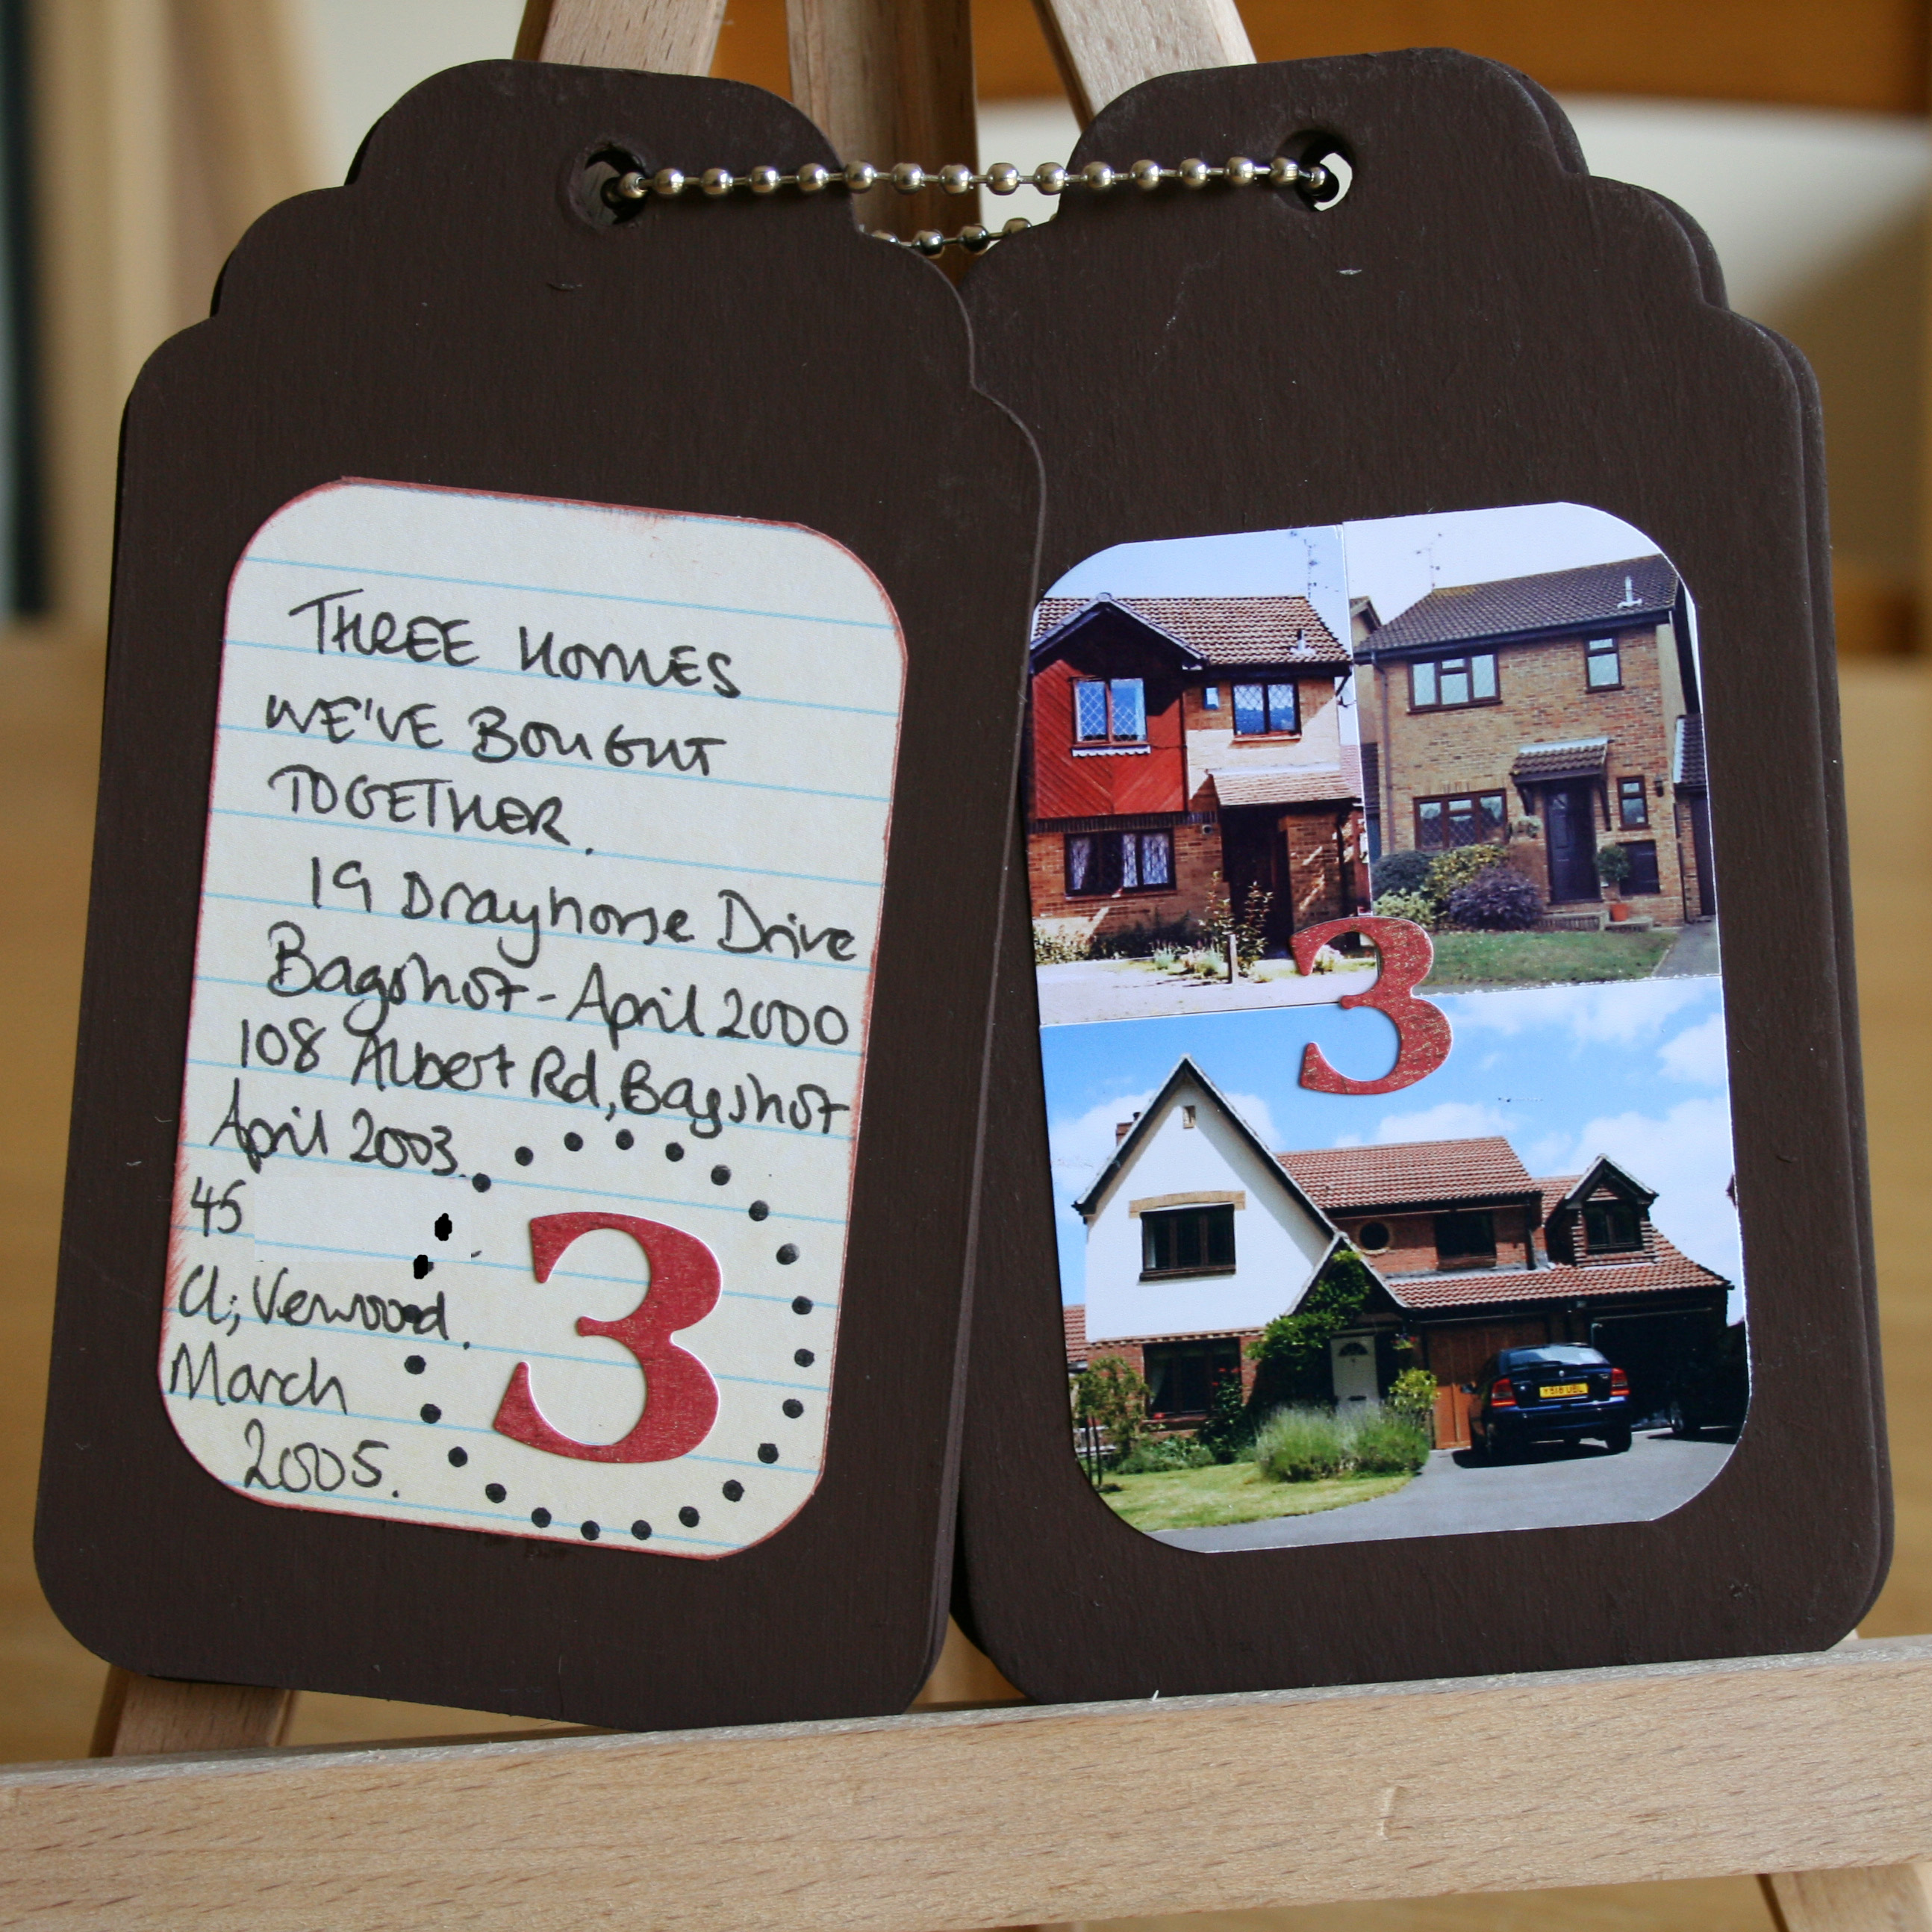 THREE HOMES
WE'VE BOUGHT
TOGETHER.
19 Drayhorse Drive
Bagshot - April 2000
108 Albert Rd, Bagshot
April 2003.
45
Cl; Verwood.
March
2005.
3
3